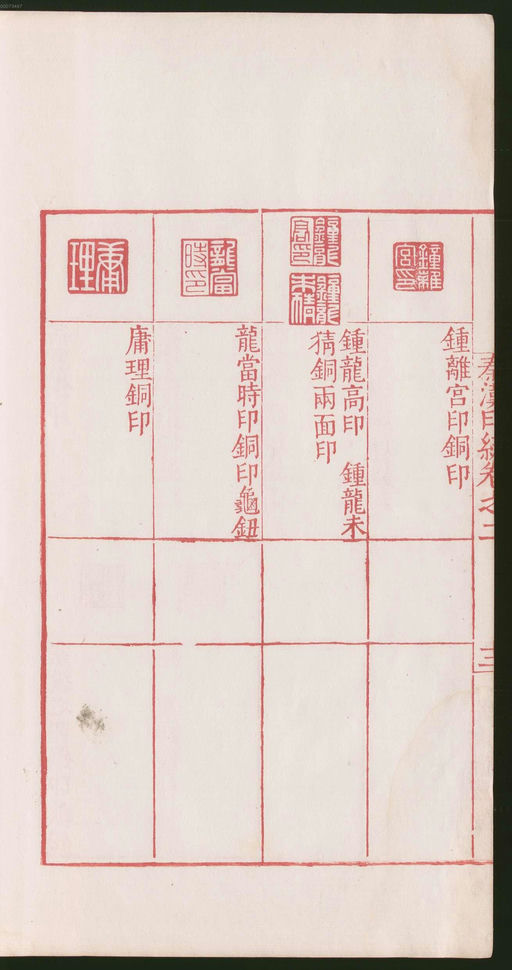 秦漢印統卷之二
三
鍾離宮印
鍾離宮印銅印
鍾龍高印
鍾龍未猜
鍾龍高印 鍾龍未
猜銅兩面印
龍當時印
龍當時印銅印龜鈕
庸理
庸理銅印